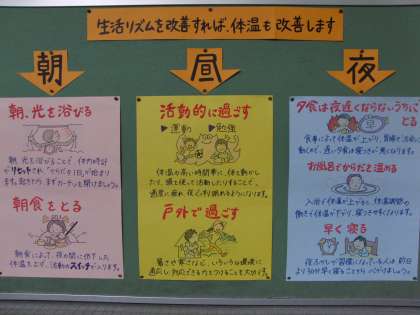 生活リズムを改善すれば、体温も改善します
朝
朝、光を浴びる
朝、光を浴びることで、体内時計
がリセットされ、「からだ」も「目」が始まり
ます。起きたら、まずカーテンを開けましょう。
朝食をとる
朝食によって、夜の間に低下した
体温を上げ、活動のスイッチが入ります。
昼
活動的に過ごす
▶運動 ▶勉強
体温の高い時間帯に、体を動かし
たり、頭を使って活動したりすることで、
適度に疲れ、夜ぐっすり眠れるようになります。
戸外で過ごす
暑さや寒さなど、いろいろな環境に
適応し対応できる力をつけることも大切です。
夜
夕食は夜遅くならないうちに
とる
食事によって体温が上がり、胃腸で活発に
動くので、遅い夕食は寝つきが悪くなります。
お風呂でからだを温める
入浴で体温が上がると、体温調節の
働きで体温が下がり、寝つきやすくなります。
早く寝る
夜ふかしが習慣になっている人は、前日
より30分早く寝ることから心がけましょう。